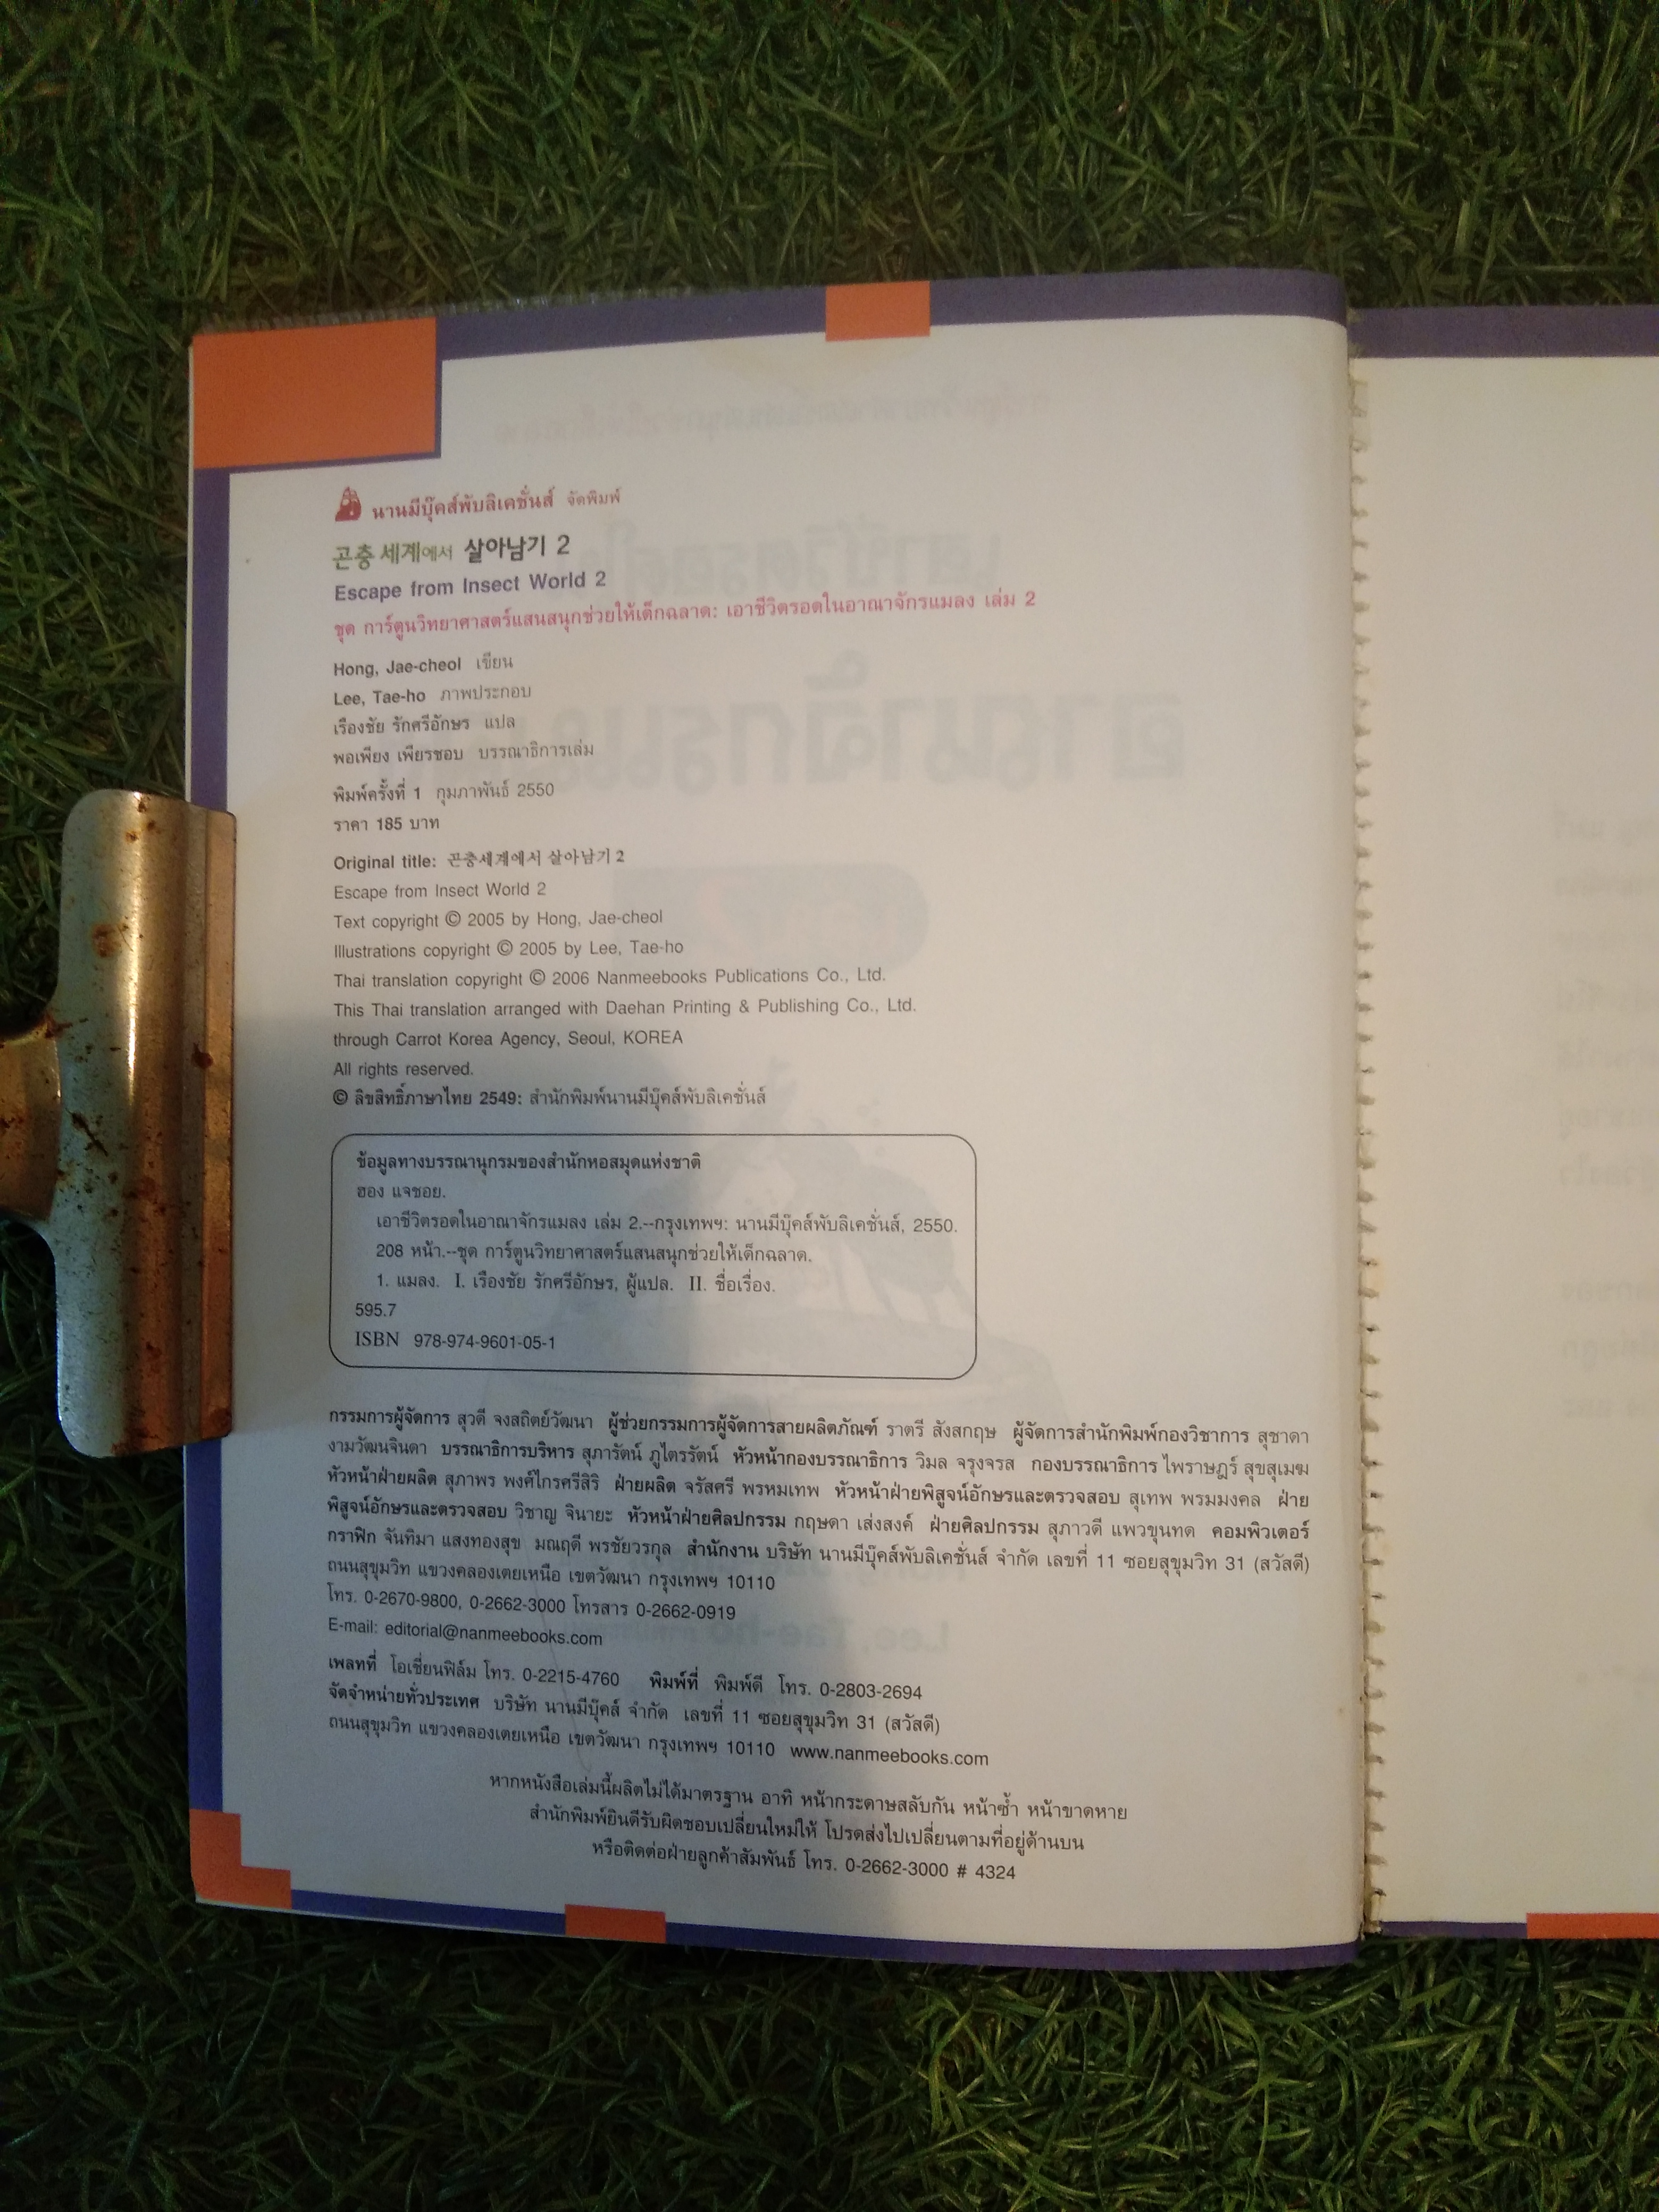 นานมีบุ๊คส์พับลิเคชั่นส์ จัดพิมพ์
곤충 세계에서 살아남기 2
Escape from Insect World 2
ชุด การ์ตูนวิทยาศาสตร์แสนสนุกช่วยให้เด็กฉลาด: เอาชีวิตรอดในอาณาจักรแมลง เล่ม 2
Hong, Jae-cheol เขียน
Lee, Tae-ho ภาพประกอบ
เรืองชัย รักศรีอักษร แปล
พอเพียง เพียรชอบ บรรณาธิการเล่ม
พิมพ์ครั้งที่ 1 กุมภาพันธ์ 2550
ราคา 185 บาท
Original title: 곤충세계에서 살아남기 2
Escape from Insect World 2
Text copyright © 2005 by Hong, Jae-cheol
Illustrations copyright © 2005 by Lee, Tae-ho
Thai translation copyright © 2006 Nanmeebooks Publications Co., Ltd.
This Thai translation arranged with Daehan Printing & Publishing Co., Ltd.
through Carrot Korea Agency, Seoul, KOREA
All rights reserved.
© ลิขสิทธิ์ภาษาไทย 2549: สำนักพิมพ์นานมีบุ๊คส์พับลิเคชั่นส์
ข้อมูลทางบรรณานุกรมของสำนักหอสมุดแห่งชาติ
ฮอง แจชอย.
เอาชีวิตรอดในอาณาจักรแมลง เล่ม 2.--กรุงเทพฯ: นานมีบุ๊คส์พับลิเคชั่นส์, 2550.
208 หน้า.--ชุด การ์ตูนวิทยาศาสตร์แสนสนุกช่วยให้เด็กฉลาด.
1. แมลง. I. เรืองชัย รักศรีอักษร, ผู้แปล. II. ชื่อเรื่อง.
595.7
ISBN 978-974-9601-05-1
กรรมการผู้จัดการ สุวดี จงสถิตย์วัฒนา ผู้ช่วยกรรมการผู้จัดการสายผลิตภัณฑ์ ราตรี สังสกฤษ ผู้จัดการสำนักพิมพ์กองวิชาการ สุชาดา
งามวัฒนจินดา บรรณาธิการบริหาร สุภารัตน์ ภูไตรรัตน์ หัวหน้ากองบรรณาธิการ วิมล จรุงจรส กองบรรณาธิการ ไพราษฎร์ สุขสุเมฆ
หัวหน้าฝ่ายผลิต สุภาพร พงศ์ไกรศรีสิริ ฝ่ายผลิต จรัสศรี พรหมเทพ หัวหน้าฝ่ายพิสูจน์อักษรและตรวจสอบ สุเทพ พรมมงคล ฝ่าย
พิสูจน์อักษรและตรวจสอบ วิชาญ จินายะ หัวหน้าฝ่ายศิลปกรรม กฤษดา เส่งสงค์ ฝ่ายศิลปกรรม สุภาวดี แพวขุนทด คอมพิวเตอร์
กราฟิก จันทิมา แสงทองสุข มณฤดี พรชัยวรกุล สำนักงาน บริษัท นานมีบุ๊คส์พับลิเคชั่นส์ จำกัด เลขที่ 11 ซอยสุขุมวิท 31 (สวัสดี)
ถนนสุขุมวิท แขวงคลองเตยเหนือ เขตวัฒนา กรุงเทพฯ 10110
โทร. 0-2670-9800, 0-2662-3000 โทรสาร 0-2662-0919
E-mail: editorial@nanmeebooks.com
เพลทที่ โอเชี่ยนฟิล์ม โทร. 0-2215-4760 พิมพ์ที่ พิมพ์ดี โทร. 0-2803-2694
จัดจำหน่ายทั่วประเทศ บริษัท นานมีบุ๊คส์ จำกัด เลขที่ 11 ซอยสุขุมวิท 31 (สวัสดี)
ถนนสุขุมวิท แขวงคลองเตยเหนือ เขตวัฒนา กรุงเทพฯ 10110 www.nanmeebooks.com
หากหนังสือเล่มนี้ผลิตไม่ได้มาตรฐาน อาทิ หน้ากระดาษสลับกัน หน้าซ้ำ หน้าขาดหาย
สำนักพิมพ์ยินดีรับผิดชอบเปลี่ยนใหม่ให้ โปรดส่งไปเปลี่ยนตามที่อยู่ด้านบน
หรือติดต่อฝ่ายลูกค้าสัมพันธ์ โทร. 0-2662-3000 # 4324